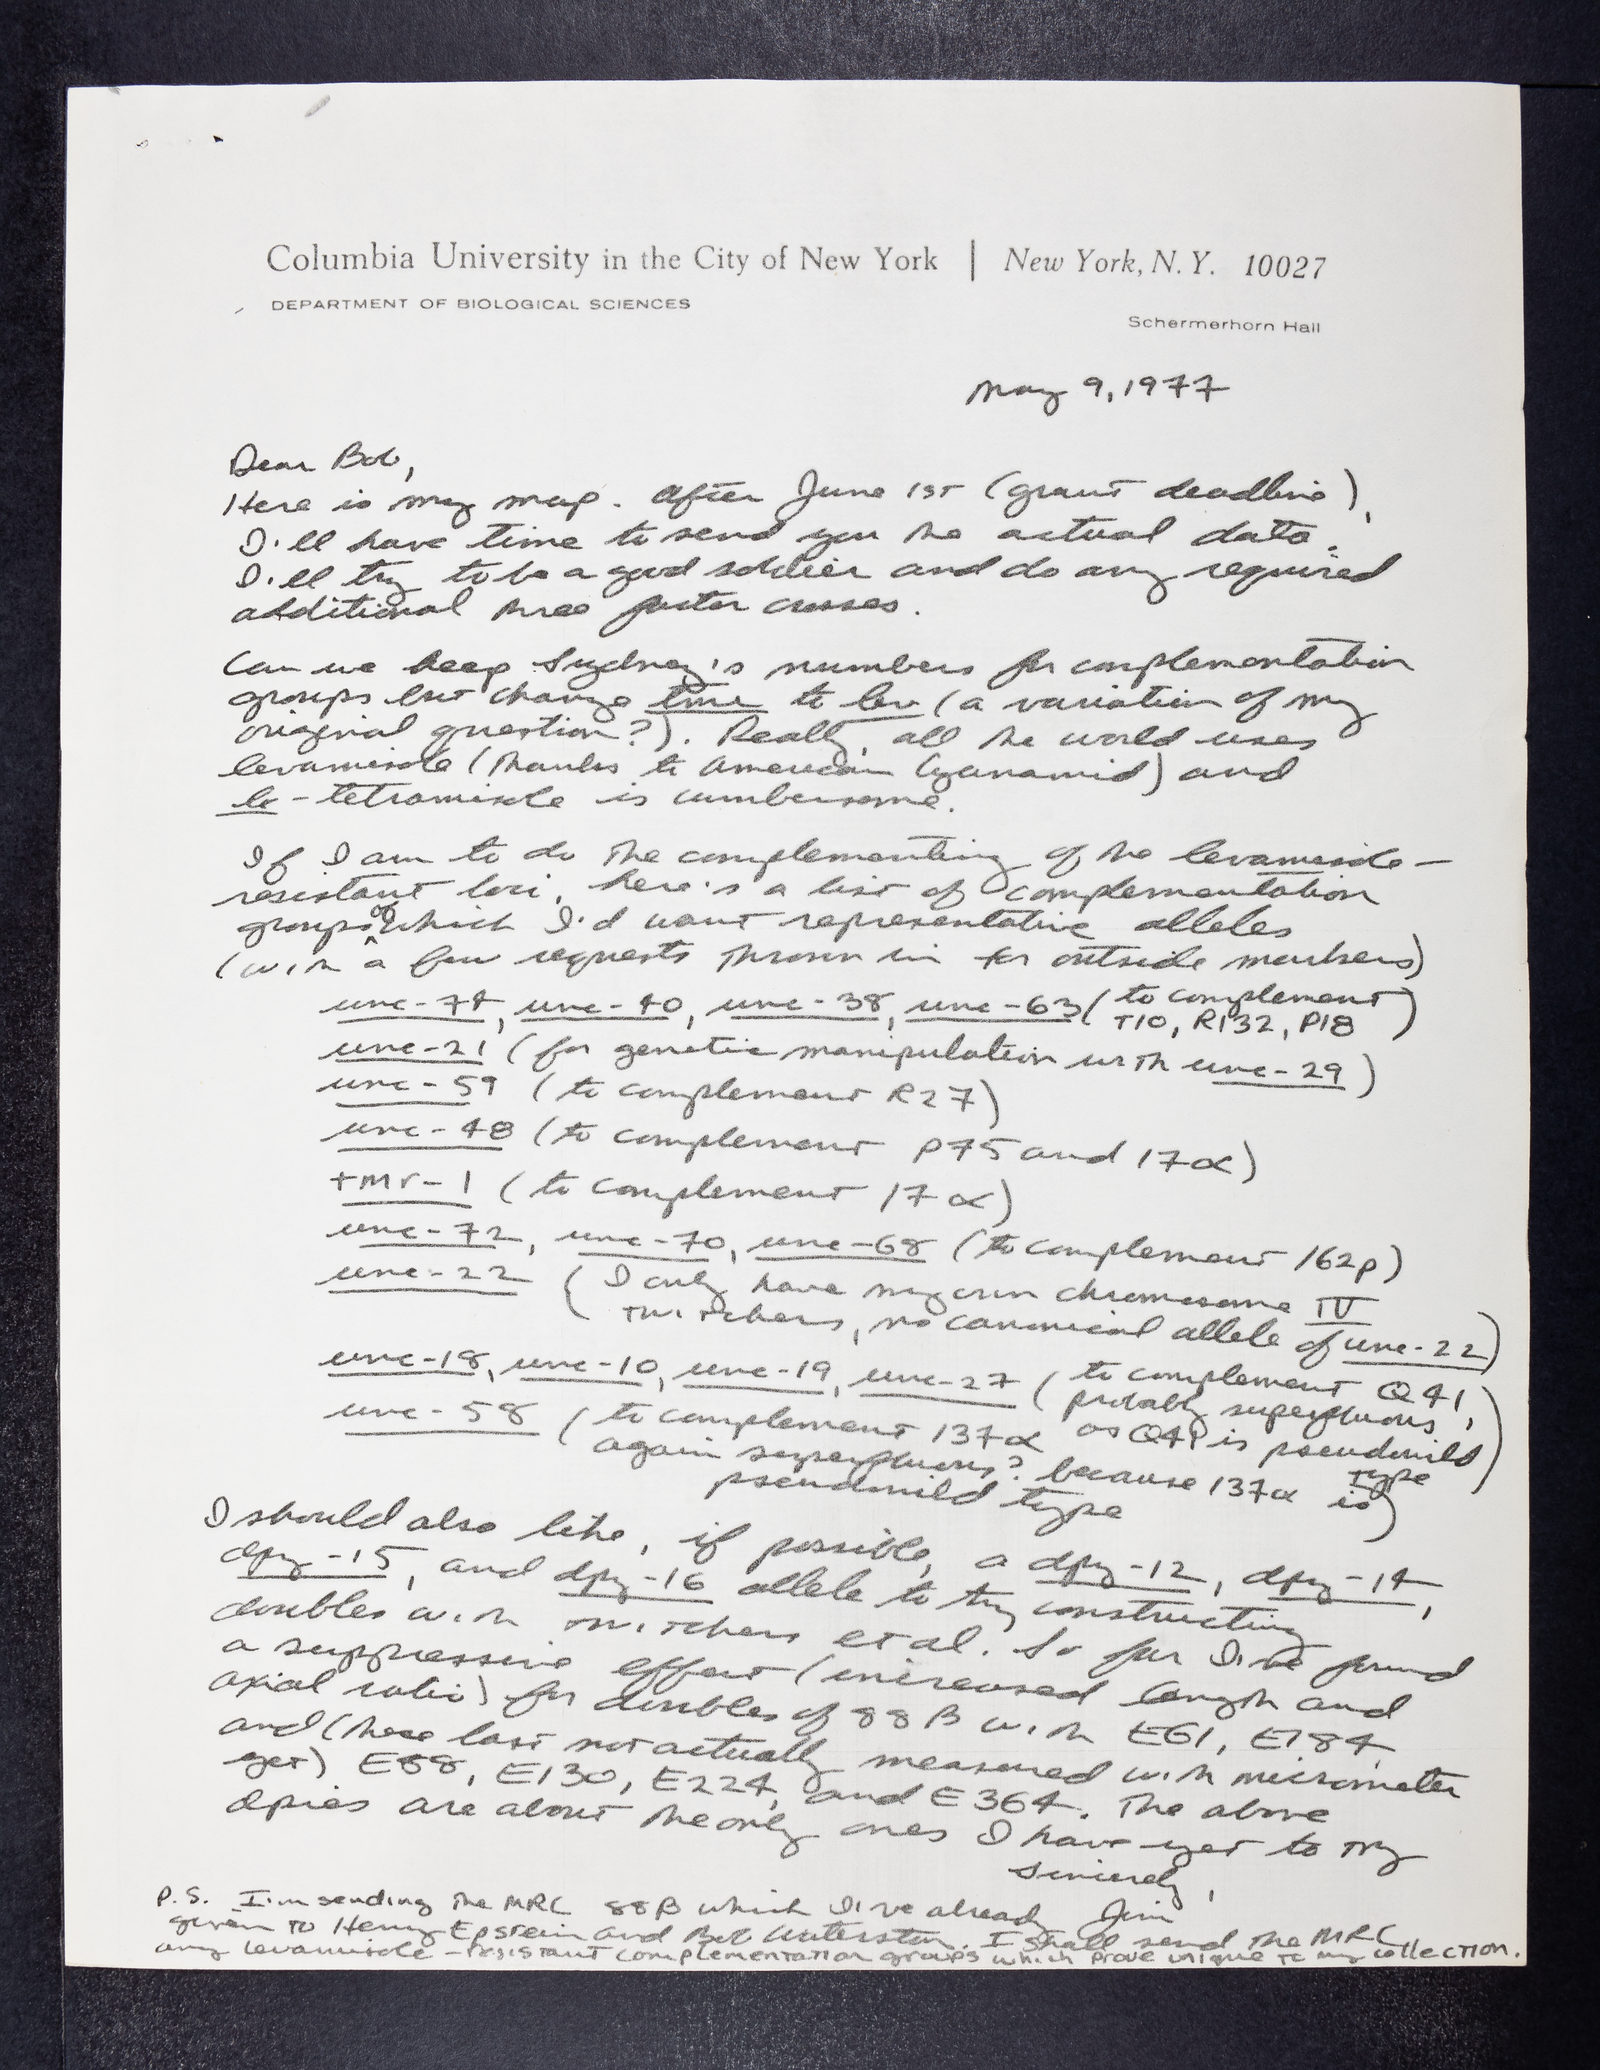 Columbia University in the City of New York | New York, N.Y. 10027
DEPARTMENT OF BIOLOGICAL SCIENCES
Schermerhorn Hall
May 9, 1977
Dear Bob,
Here is my map. After June 1st (grant deadline),
I'll have time to send you the actual data.
I'll try to be a good soldier and do any required
additional three factor crosses.
Can we keep Sydney's numbers for complementation
groups but change tmr to lev (a variation of my
original question?). Really, all the world uses
levamisole (thanks to American Cyanamid) and
-tetramisole is cumbersome.
If I am to do the complementing of the levamisole-
resistant loci, here's a list of complementation
groups of which I'd want representative alleles
(with a few requests thrown in for outside markers)
unc-74, unc-40, unc-38, unc-63 (to complement
T10, R132, P18)
unc-21 (for genetic manipulation with unc-29)
unc-59 (to complement R27)
unc-48 (to complement P75 and 17α)
tmr-1 (to complement 17α)
unc-72, unc-70, unc-68 (to complement 162p)
unc-22 (I only have my own chromosome IV
twitchers, no canonical allele of unc-22)
unc-18, unc-10, unc-19, unc-27 (to complement Q41,
probably superfluous,
as Q41 is pseudowild
type)
unc-58 (to complement 137α
again superfluous? because 137α is
pseudowild type)
I should also like, if possible, a dpy-12, dpy-14,
dpy-15, and dpy-16 allele to try constructing
doubles with twitchers et al. So far I've found
a suppressive effect (increased length and
axial ratio) for doubles of 88B with E61, E184,
and (these last not actually measured with micrometer
yet) E88, E130, E224, and E364. The above
dpies are about the only ones I have yet to try
Sincerely,
Jim
P.S. I'm sending the MRC 88B which I've already
given to Henry Epstein and Bob Waterston. I shall send the MRC
any levamisole-resistant complementation groups which prove unique to my collection.